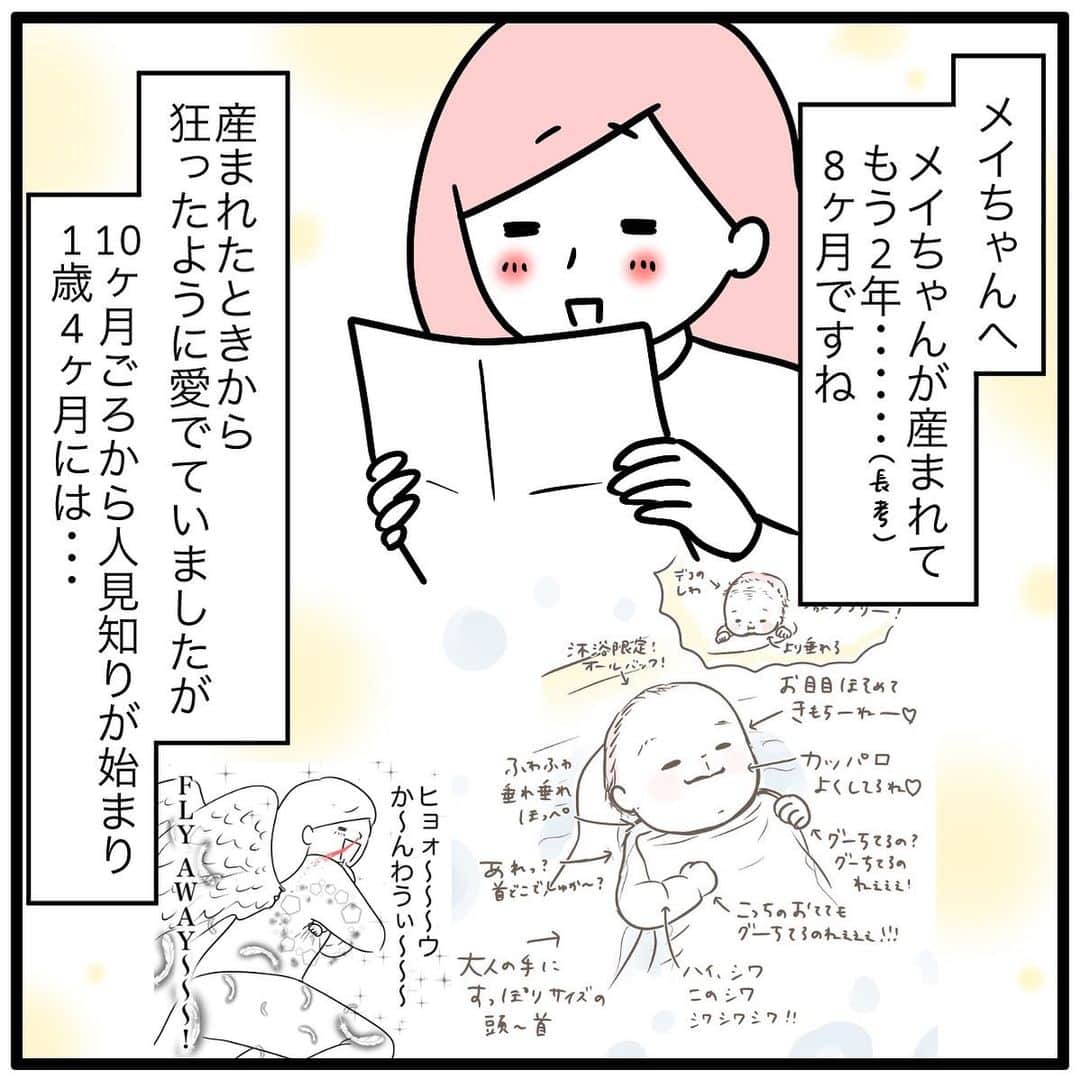 メイちゃんへ
メイちゃんが産まれて
もう2年・・・・・・(長考)
8ヶ月ですね
産まれたときから
狂ったように愛でていましたが
10ヶ月ごろから人見知りが始まり
1歳4ヶ月には・・・
デコの
しわ
より垂れる
沐浴限定!
オールバック!
お目目ほそめて
きもちーねー♡
カッパ口
よくしてるね♡
ふわふわ
垂れ垂れ
ほっぺ
グーちてるの?
グーちてるの
ねぇぇぇ!
あれっ?
首どこでしゅか〜?
こっちのおてても
グーちてるのねぇぇぇ!!!
大人の手に
すっぽりサイズの
頭〜首
ハイ、シワ
このシワ
シワシワシワ!!
ヒョォ〜〜〜〜ウ
か〜んわうぃ〜〜〜〜
FLY AWAY〜〜〜!